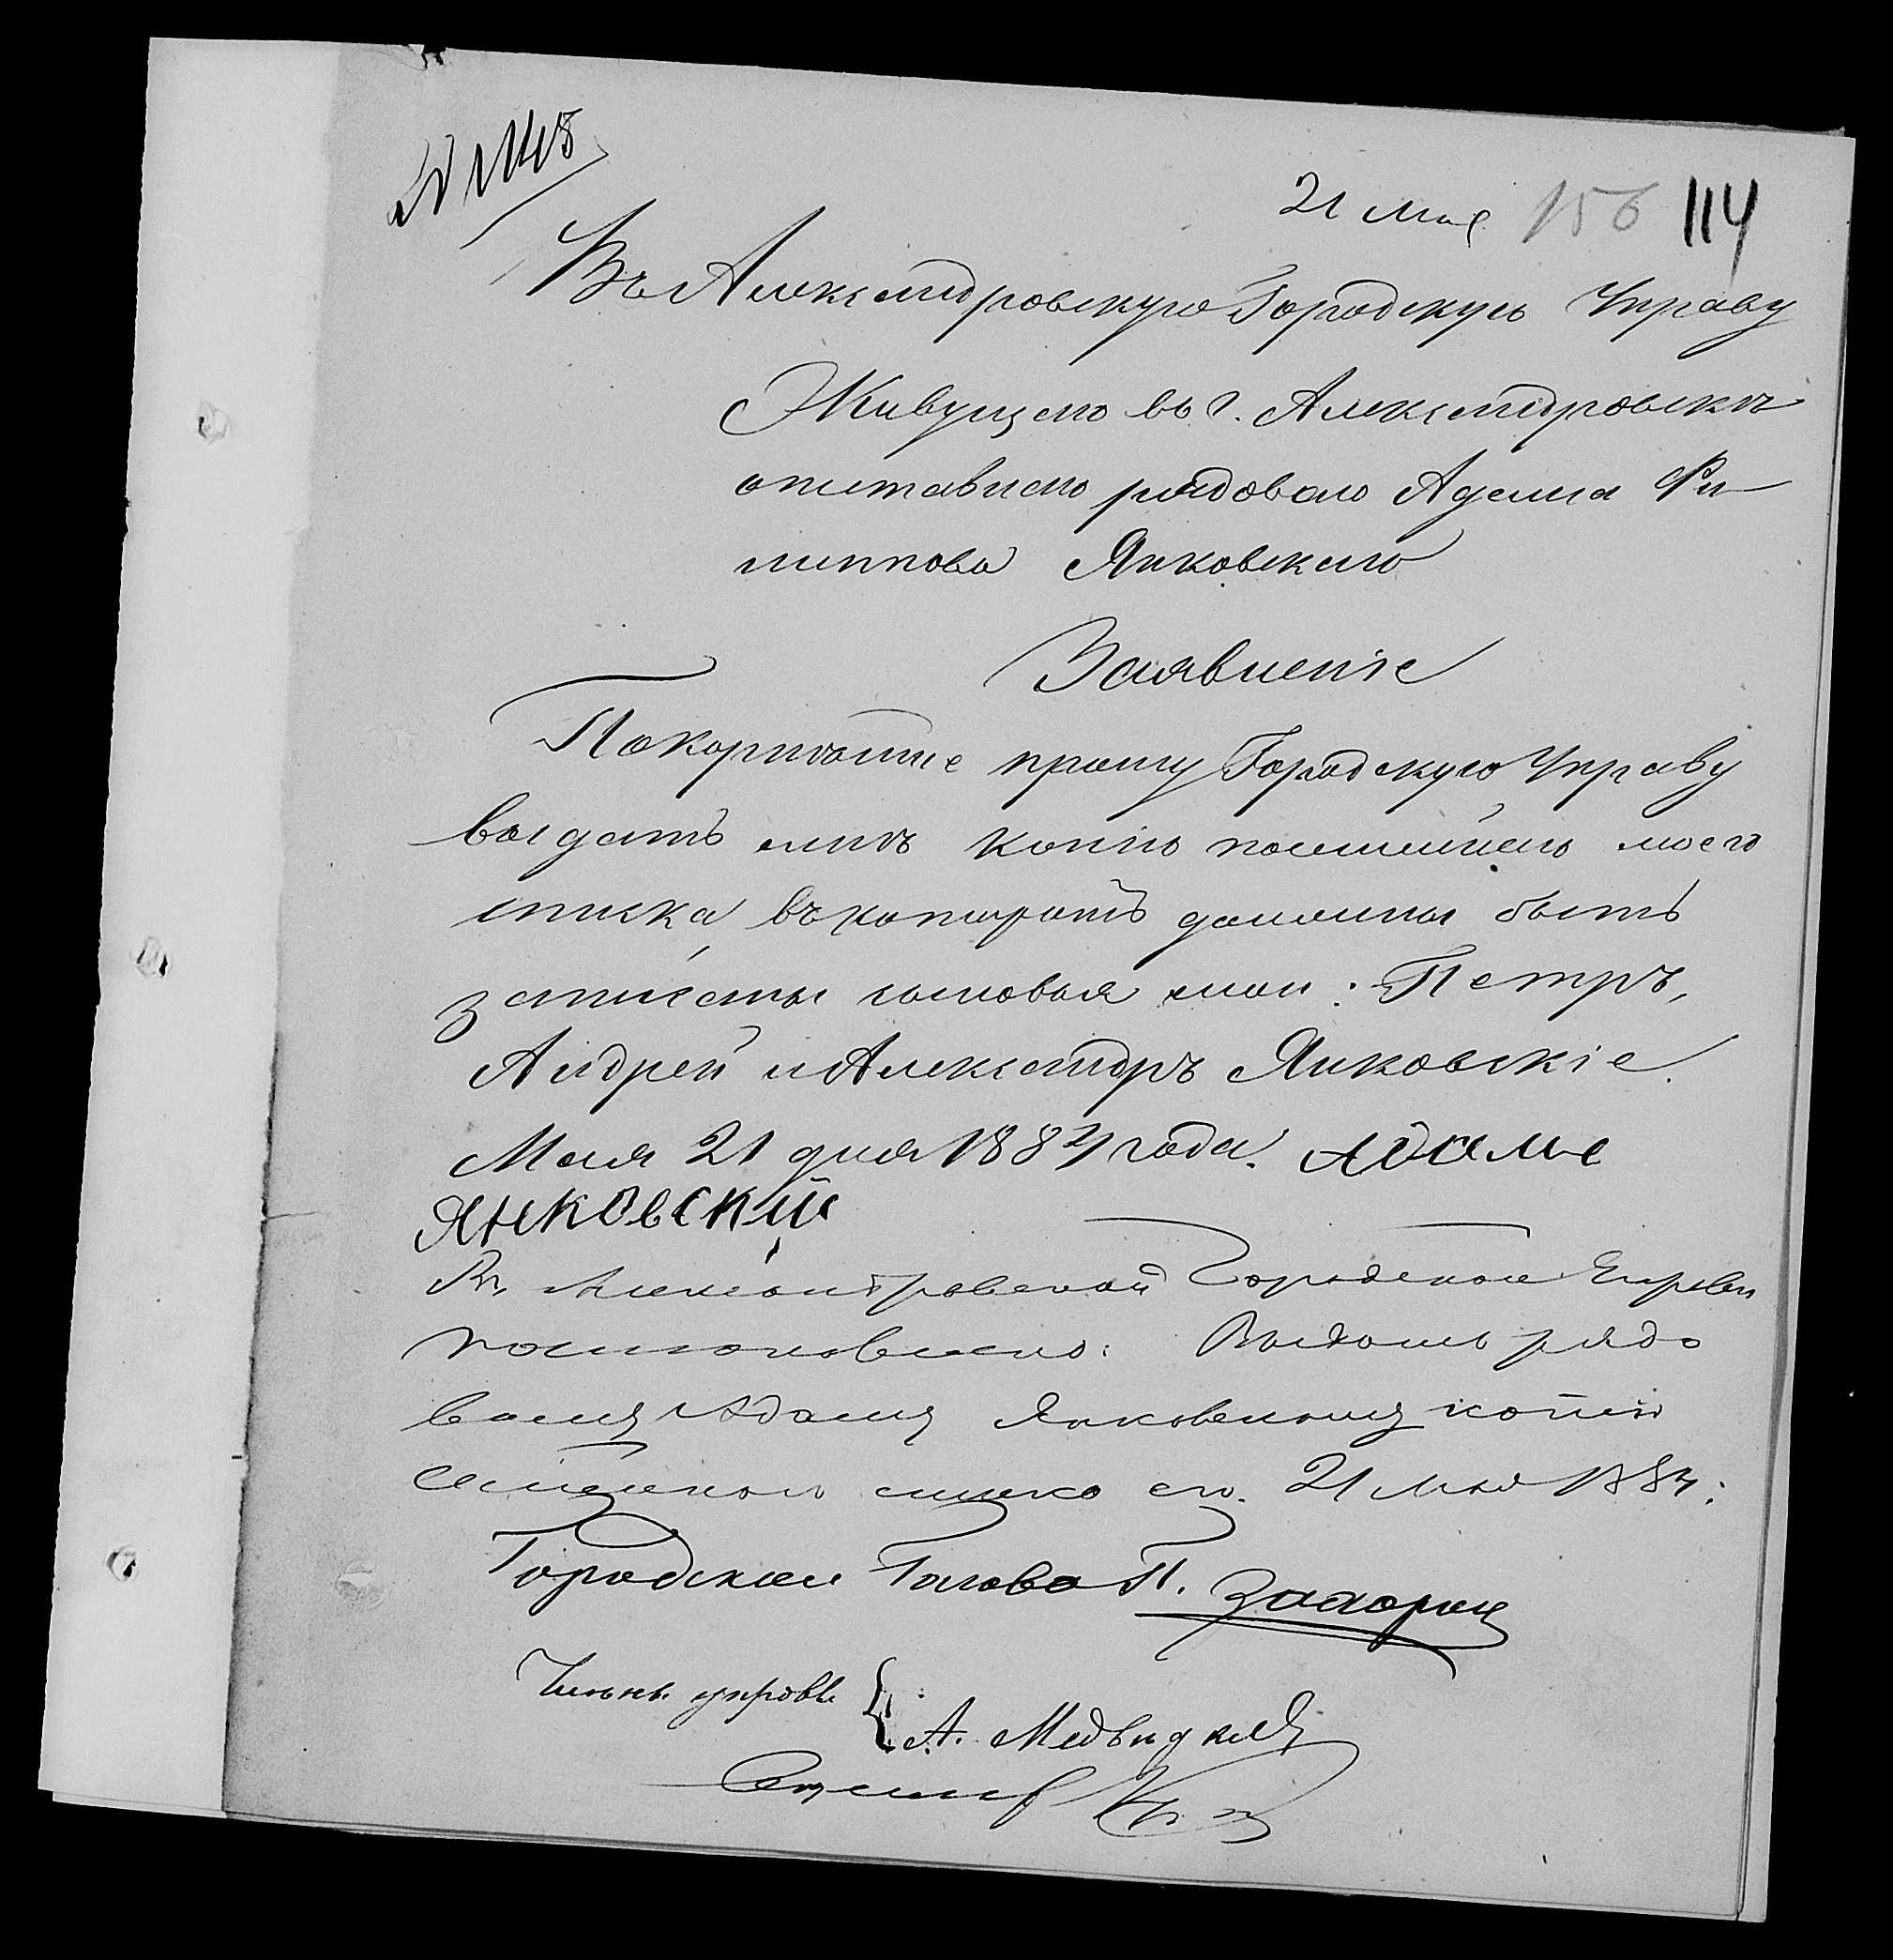 21 мая 156 114
Въ Александровскую Городскую Управу
Живущаго въ г. Александровскѣ
отставнаго рядоваго Адама Фи-
липпова Янковскаго
Заявленіе
Покорнѣйше прошу Городскую Управу
выдать мнѣ копію посемейнаго моего
списка въ которомъ должны быть
записаны сыновья мои: Петръ,
Андрей и Александръ Янковскіе.
Мая 21 дня 1884 года. Адамъ
Янковский
Въ Александровской Городской Управѣ
постановлено: Выдать рядо
вому Адаму Янковскому копію
семейнаго списка его. 21 мая 1884.
Городской Голова П. Захарин
Члены управы
А. Медвидкий